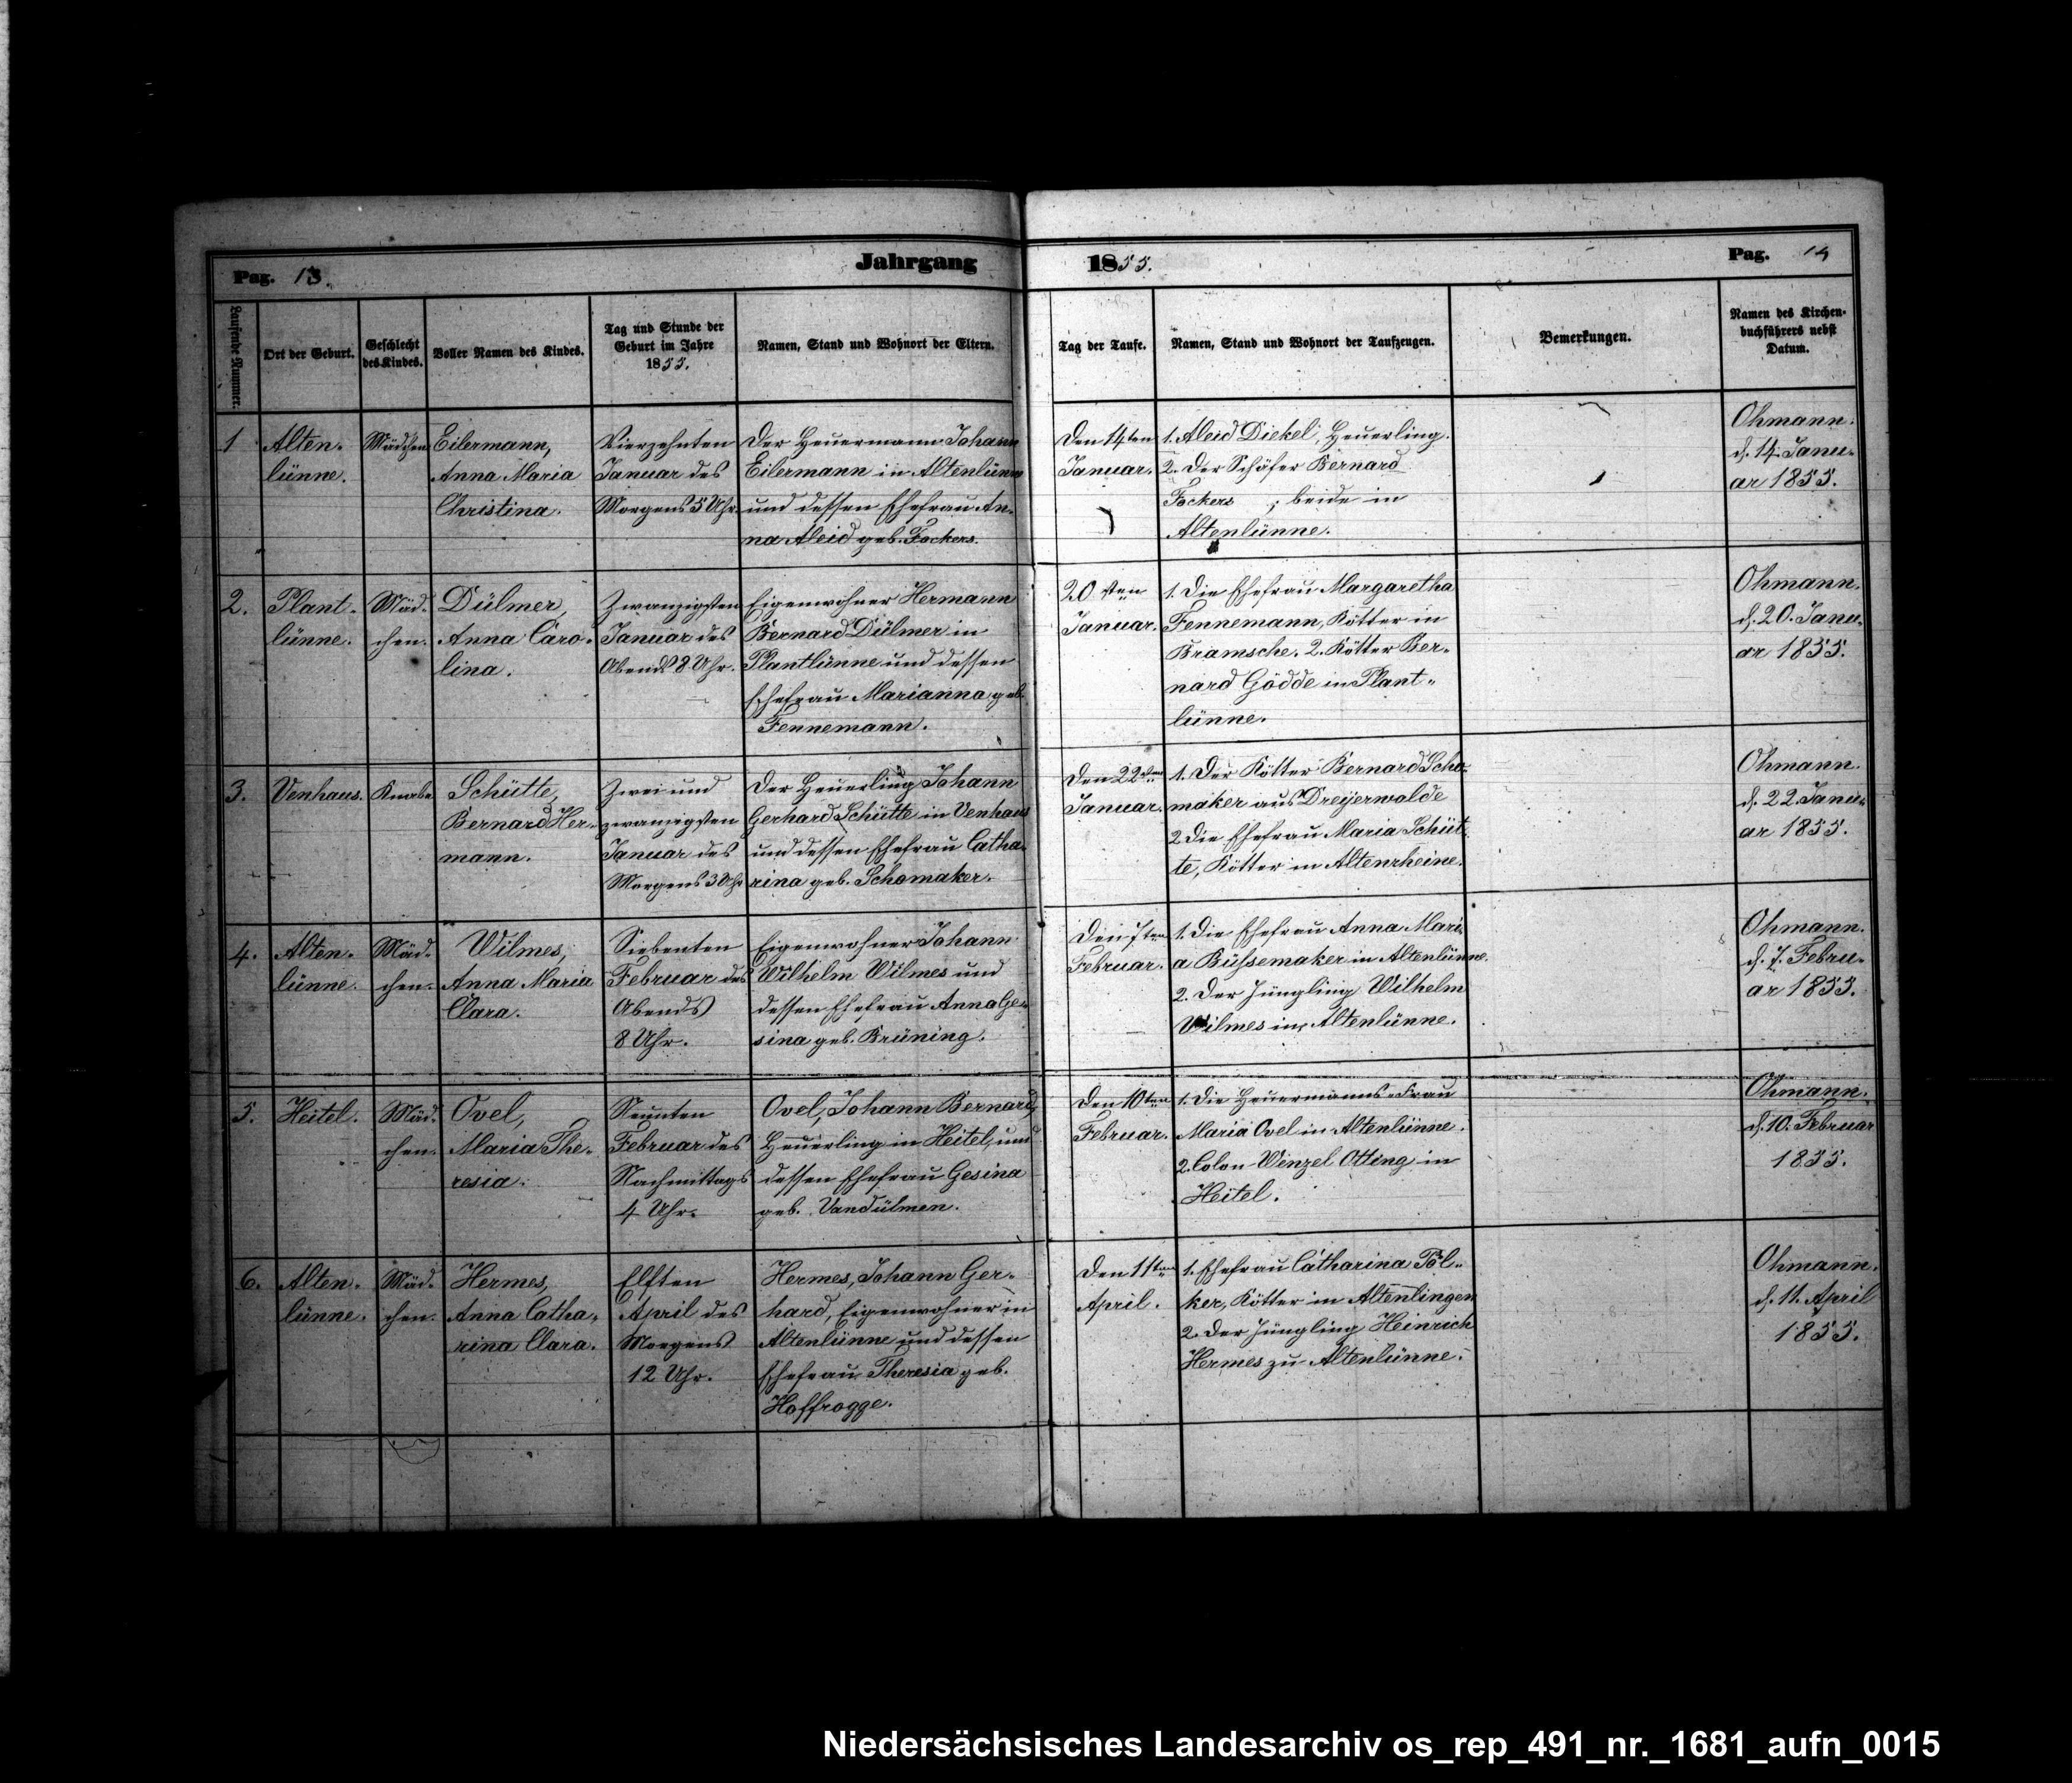 Pag. 13. Jahrgang 1855. Pag. 14
Laufende Nummer.
Ort der Geburt.
Geschlecht
des Kindes.
Voller Namen des Kindes.
Tag und Stunde der
Geburt im Jahre
1855.
Namen, Stand und Wohnort der Eltern.
Tag der Taufe.
Namen, Stand und Wohnort der Taufzeugen.
Bemerkungen.
Namen des Kirchen-
buchführers nebst
Datum.
1
Alten-
lünne.
Mädchen
Eilermann,
Anna Maria
Christina.
Vierzehnten
Januar des
Morgens 5 Uhr.
Der Heuermann Johann
Eilermann in Altenlünne
und dessen Ehefrau An-
na Aleid geb. Fockers.
Den 14ten
Januar.
1. Aleid Diekel, Heuerling.
2. Der Schäfer Bernard
Fockers ; beide in
Altenlünne.
Ohmann.
d. 14. Janu-
ar 1855.
2.
Plant-
lünne.
Mäd-
chen.
Dülmer,
Anna Caro-
lina.
Zwanzigsten
Januar des
Abends 8 Uhr.
Eigenwohner Hermann
Bernard Dülmer in
Plantlünne und dessen
Ehefrau Marianna geb.
Fennemann.
20sten
Januar.
1. Die Ehefrau Margaretha
Fennemann, Kötter in
Bramsche. 2. Kötter Ber-
nard Gödde in Plant-
lünne.
Ohmann.
d. 20. Janu-
ar 1855.
3.
Venhaus.
Knabe
Schütte,
Bernard Her-
mann.
Zwei und
zwanzigsten
Januar des
Morgens 3 Uhr
Der Heuerling Johann
Gerhard Schütte in Venhaus
und dessen Ehefrau Catha-
rina geb. Schomaker.
Den 22sten
Januar.
1. Der Kötter Bernard Scho-
maker aus Dreijerwalde
2 Die Ehefrau Maria Schüt-
te, Kötter in Altenrheine.
Ohmann.
d. 22. Janu-
ar 1855.
4.
Alten-
lünne.
Mäd-
chen.
Wilmes,
Anna Maria
Clara.
Siebenten
Februar des
Abends
8 Uhr.
Eigenwohner Johann
Wilhelm Wilmes und
dessen Ehefrau Anna Ge-
sina geb. Brüning.
Den 7ten
Februar.
1. Die Ehefrau Anna Mari-
a Büssemaker in Altenlünne.
2. Der Jüngling Wilhelm
Wilmes in Altenlünne.
Ohmann.
d. 7. Febru-
ar 1855.
5.
Heitel.
Mäd-
chen.
Ovel,
Maria The-
resia.
Neunten
Februar des
Nachmittags
4 Uhr.
Ovel, Johann Bernard,
Heuerling in Heitel, und
dessen Ehefrau Gesina
geb. Vandülmen.
Den 10ten
Februar.
1. Die Heuermanns-Frau
Maria Ovel in Altenlünne.
2. Colon Winzel Otting in
Heitel.
Ohmann.
d. 10. Februar
1855.
6.
Alten-
lünne.
Mäd-
chen.
Hermes,
Anna Catha-
rina Clara.
Elften
April des
Morgens
12 Uhr.
Hermes, Johann Ger-
hard, Eigenwohner in
Altenlünne und dessen
Ehefrau Theresia geb.
Hoffrogge.
Den 11ten
April.
1. Ehefrau Catharina Pöl-
ker, Kötter in Altenlingen
2. Der Jüngling Heinrich
Hermes zu Altenlünne.
Ohmann.
d. 11. April
1855.
Niedersächsisches Landesarchiv os_rep_491_nr._1681_aufn_0015